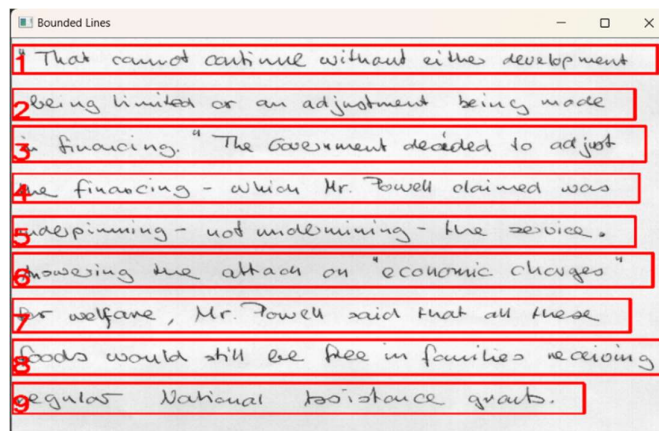 Bounded Lines
1 "That cannot continue without either development
2 being limited or an adjustment being made
3 in financing." The Government decided to adjust
4 the financing - which Mr. Powell claimed was
5 underpinning - not undermining - the service.
6 Answering the attack on "economic charges"
7 for welfare, Mr. Powell said that all these
8 foods would still be free in families receiving
9 regular National Assistance grants.